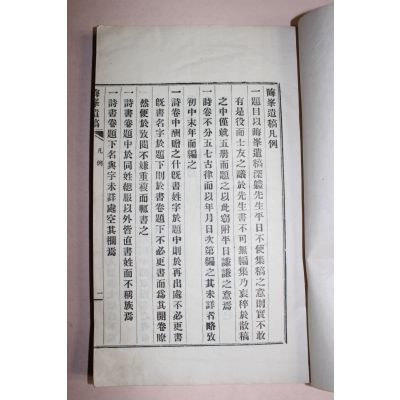 晦峯遺稿凡例
一題目以晦峯遺稿深軆先生平日不便集稿之意則實不敢
有是役而士友之議於先生書不可無編集乃裒稡於散稿
之中僅就五册而題之以此竊附平日謙謙之意焉
一詩卷不分五七古律而以年月日次第編之其未詳者略攷
初中末年而編之
一詩卷中酬贈之什旣書姓字於題中則於再出處不必更書
旣書名字於題下則於書卷題下不必更書而爲其開卷瞭
然便於攷閱不嫌重複而輒書之
一詩書卷題中於同姓緦服以外皆直書姓而不稱族焉
一詩書卷題下名與字未詳處空其欄焉
晦峯遺稿
凡例
一